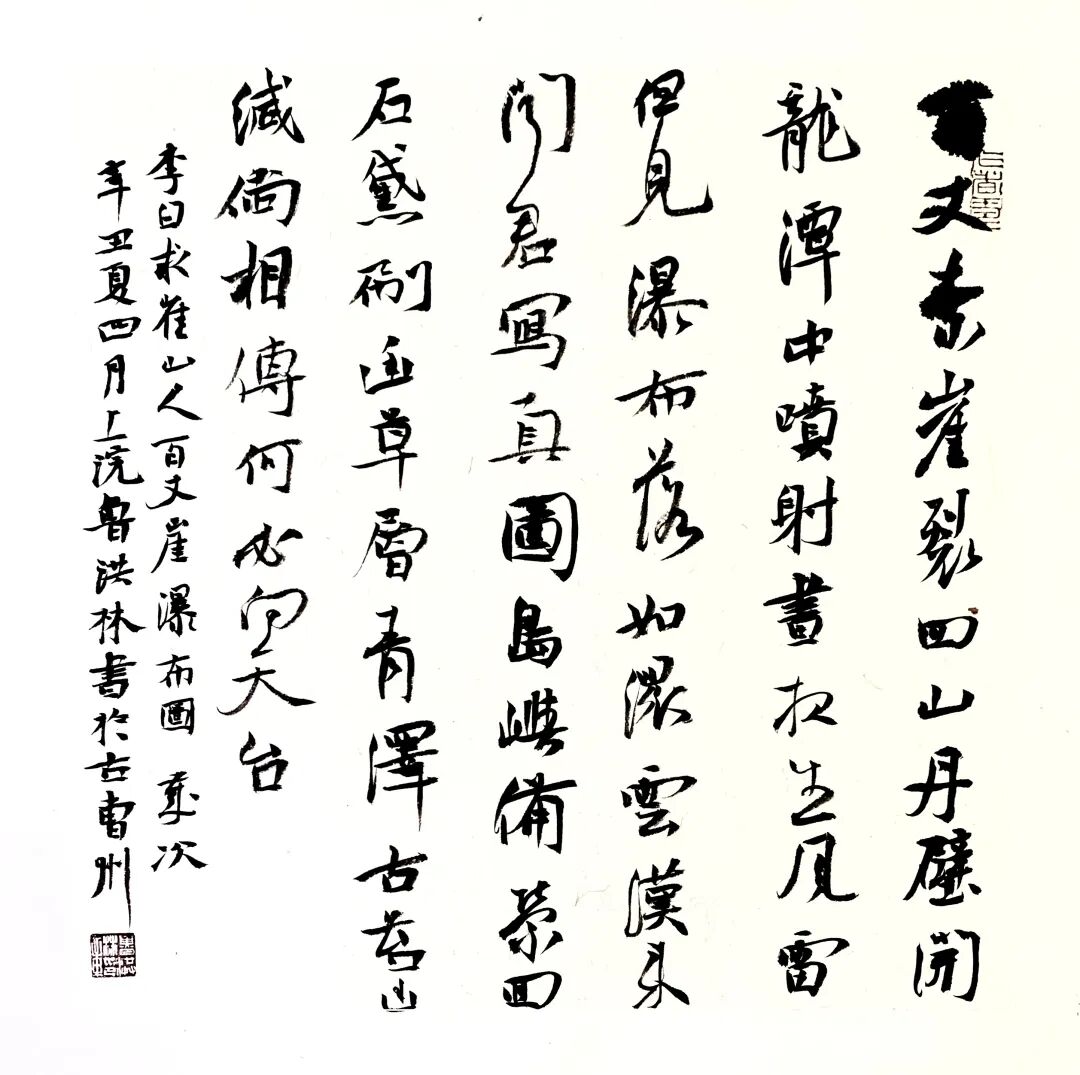 百丈素崖裂四山丹壁開
龍潭中噴射晝夜生風雷
但見瀑布落如潈雲漢来
聞君寫真圖島嶼備縈回
石黛刷幽草層青澤古苔幽
緘倘相傳何必向天台
李白求崔山人百丈崖瀑布圖 歲次
辛丑夏四月上浣魯洪林書於古曹州